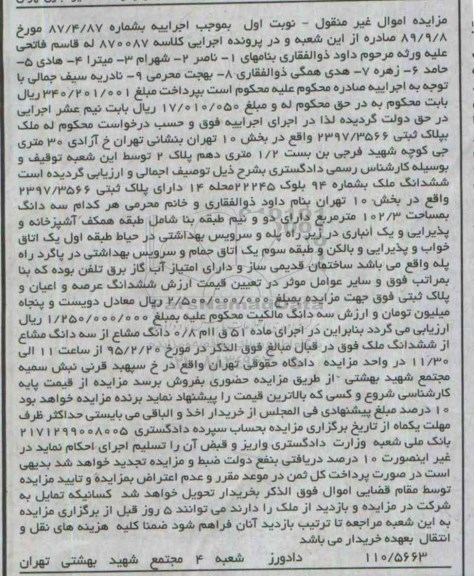 مزایده اموال غیر منقول - نوبت اول بموجب اجراییه بشماره ۸۷/۴/۸۷ مورخ
۸۹/۹/۸ صادره از این شعبه و در پرونده اجرایی کلاسه ۸۷۰۰۸۷ له قاسم فاتحی
علیه ورثه مرحوم داود ذوالفقاری بنامهای ۱- ناصر ۲- شهرام ۳- میترا ۴- هادی ۵-
حامد ۶- زهره ۷- هدی همگی ذوالفقاری ۸- بهجت محرمی ۹- نادریه سیف جمالی با
توجه به اجراییه صادره محکوم علیه محکوم است بپرداخت مبلغ ۳۴۰/۲۰۱/۰۰۱ ریال
بابت محکوم به در حق محکوم له و مبلغ ۱۷/۰۱۰/۰۵۰ ریال بابت نیم عشر اجرایی
در حق دولت گردیده لذا در اجرای اجراییه فوق و حسب درخواست محکوم له ملک
بپلاک ثبتی ۲۳۹۷/۳۵۶۶ واقع در بخش ۱۰ تهران بنشانی تهران خ آزادی ۳۰ متری
جی کوچه شهید فرجی بن بست ۱/۲ متری دهم پلاک ۲ توسط این شعبه توقیف و
بوسیله کارشناس رسمی دادگستری بشرح ذیل توصیف اجمالی و ارزیابی گردیده است
ششدانگ ملک بشماره ۹۴ بلوک ۲۲۲۴۵محله ۱۴ دارای پلاک ثبتی ۲۳۹۷/۳۵۶۶
واقع در بخش ۱۰ تهران بنام داود ذوالفقاری و خانم محرمی هر کدام سه دانگ
بمساحت ۱۰۲/۳ مترمربع دارای دو و نیم طبقه بنا شامل طبقه همکف آشپزخانه و
پذیرایی و یک انباری در زیر راه پله و سرویس بهداشتی در حیاط طبقه اول یک اتاق
خواب و پذیرایی و بالکن و طبقه سوم یک اتاق حمام و سرویس بهداشتی در پاگرد راه
پله واقع می باشد ساختهان قدیمی ساز و دارای امتیاز آب گاز برق تلفن بوده که بنا
بمراتب فوق و سایر عوامل موثر در تعیین قیمت ارزش ششدانگ عرصه و اعیان و
پلاک ثبتی فوق جهت مزایده بمبلغ ۲/۵۰۰/۰۰۰/۰۰۰ ریال معادل دویست و پنجاه
میلیون تومان و ارزش سه دانگ مالکیت محکوم علیه بمبلغ ۱/۲۵۰/۰۰۰/۰۰۰ ریال
ارزیابی می گردد بنابراین در اجرای ماده ۵۱ ق اام ۰/۸ دانگ مشاع از سه دانگ مشاع
از ششدانگ ملک فوق در قبال مبالغ فوق الذکر در مورخ ۹۵/۲/۲۰ از ساعت ۱۱ الی
۱۱/۳۰ در واحد مزایده دادگاه حقوقی تهران واقع در خ سپهبد قرنی نبش سمیه
مجتمع شهید بهشتی - از طریق مزایده حضوری بفروش برسد مزایده از قیمت پایه
کارشناسی شروع و کسی که بالاترین قیمت را پیشنهاد نماید برنده مزایده خواهد بود
۱۰ درصد مبلغ پیشنهادی فی المجلس از خریدار اخذ و الباقی می بایستی حداکثر ظرف
مهلت یکماه از تاریخ برگزاری مزایده بحساب سپرده دادگستری ۲۱۷۱۲۹۹۰۰۸۰۰۵
بانک ملی شعبه وزارت دادگستری واریز و قبض آن را تسلیم اجرای احکام نماید در
غیر اینصورت ۱۰ درصد دریافتی بنفع دولت ضبط و مزایده تجدید خواهد شد بدیهی
است در صورت پرداخت کل ثمن در موعد مقرر و عدم اعتراض بمزایده و تایید مزایده
توسط مقام قضایی اموال فوق الذکر بخریدار تحویل خواهد شد کسانیکه تمایل به
شرکت در مزایده و بازدید از ملک را دارند می توانند ۵ روز قبل از برگزاری مزایده
به این شعبه مراجعه تا ترتیب بازدید آنان فراهم شود ضمنا کلیه هزینه های نقل و
انتقال بعهده خریدار می باشد
۱۱۰/۵۶۶۳ دادورز شعبه ۴ مجتمع شهید بهشتی تهران